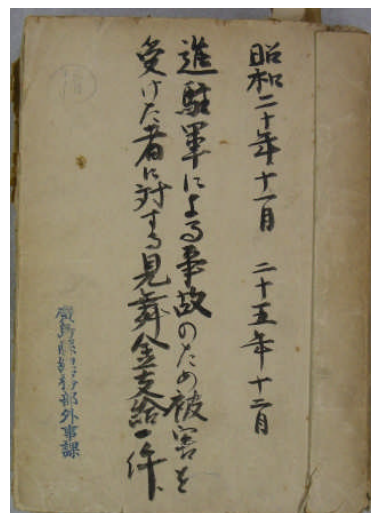 昭和二十年十一月 二十五年十二月
進駐軍による事故のため被害を
受けた者に対する見舞金支給一件
廣島縣 部外事課